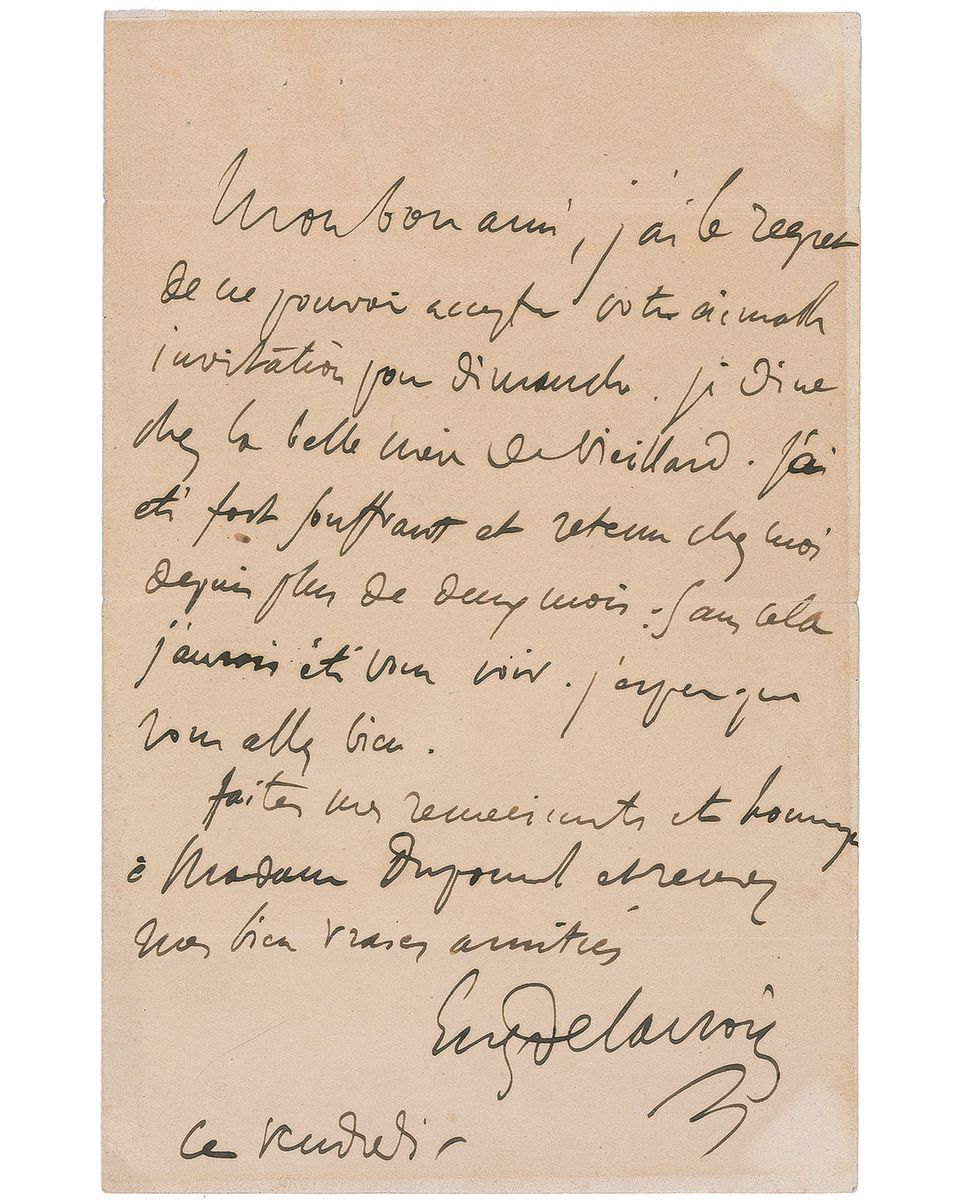 Mon bon ami, j'ai le regret
de ne pouvoir accepter votre aimable
invitation pour dimanche. je dine
chez la belle mère de Vieillard. J'ai
été fort souffrant et retenu chez moi
depuis plus de deux mois : sans cela
j'aurais été vous voir. j'espère que
vous allez bien.
faites mes remerciements et hommages
à Madame et recevez
mes bien vraies amitiés
EugDelacroix
ce vendredi